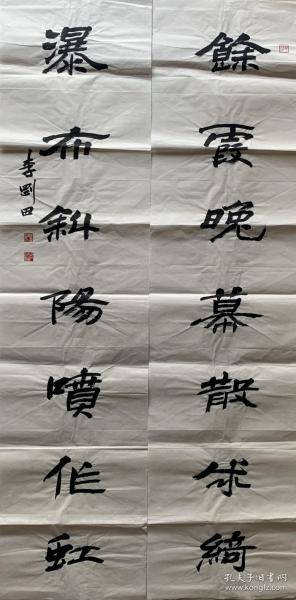 餘霞晚幕散成綺
瀑布斜陽噴作虹
李剛田
孔夫子旧书网